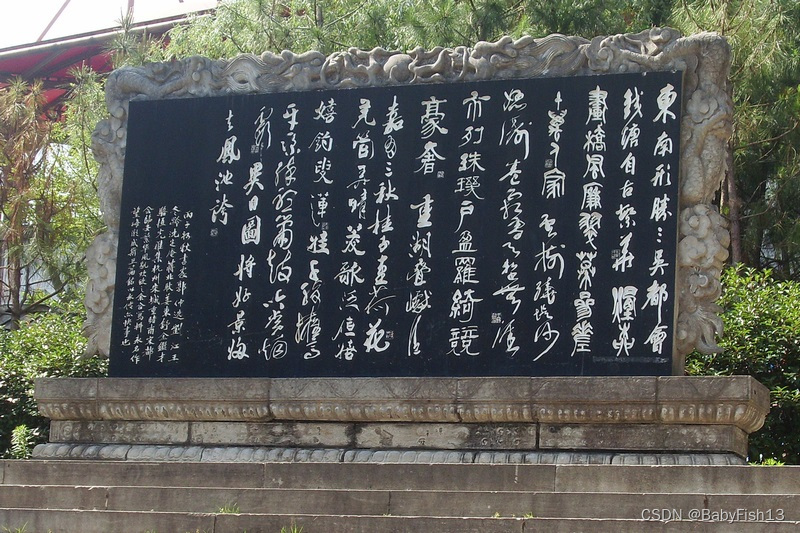 東南形勝三吳都會
錢塘自古繁華煙柳
畫橋風簾翠幕參差
十萬人家雲樹繞堤沙
怒濤卷霜雪天塹無涯
市列珠璣戶盈羅綺競
豪奢重湖疊巘清
嘉有三秋桂子十里荷花
羌管弄晴菱歌泛夜嬉
嬉釣叟蓮娃千騎擁高
牙乘醉聽簫鼓吟賞煙
霞異日圖將好景歸
去鳳池誇
CSDN @BabyFish13